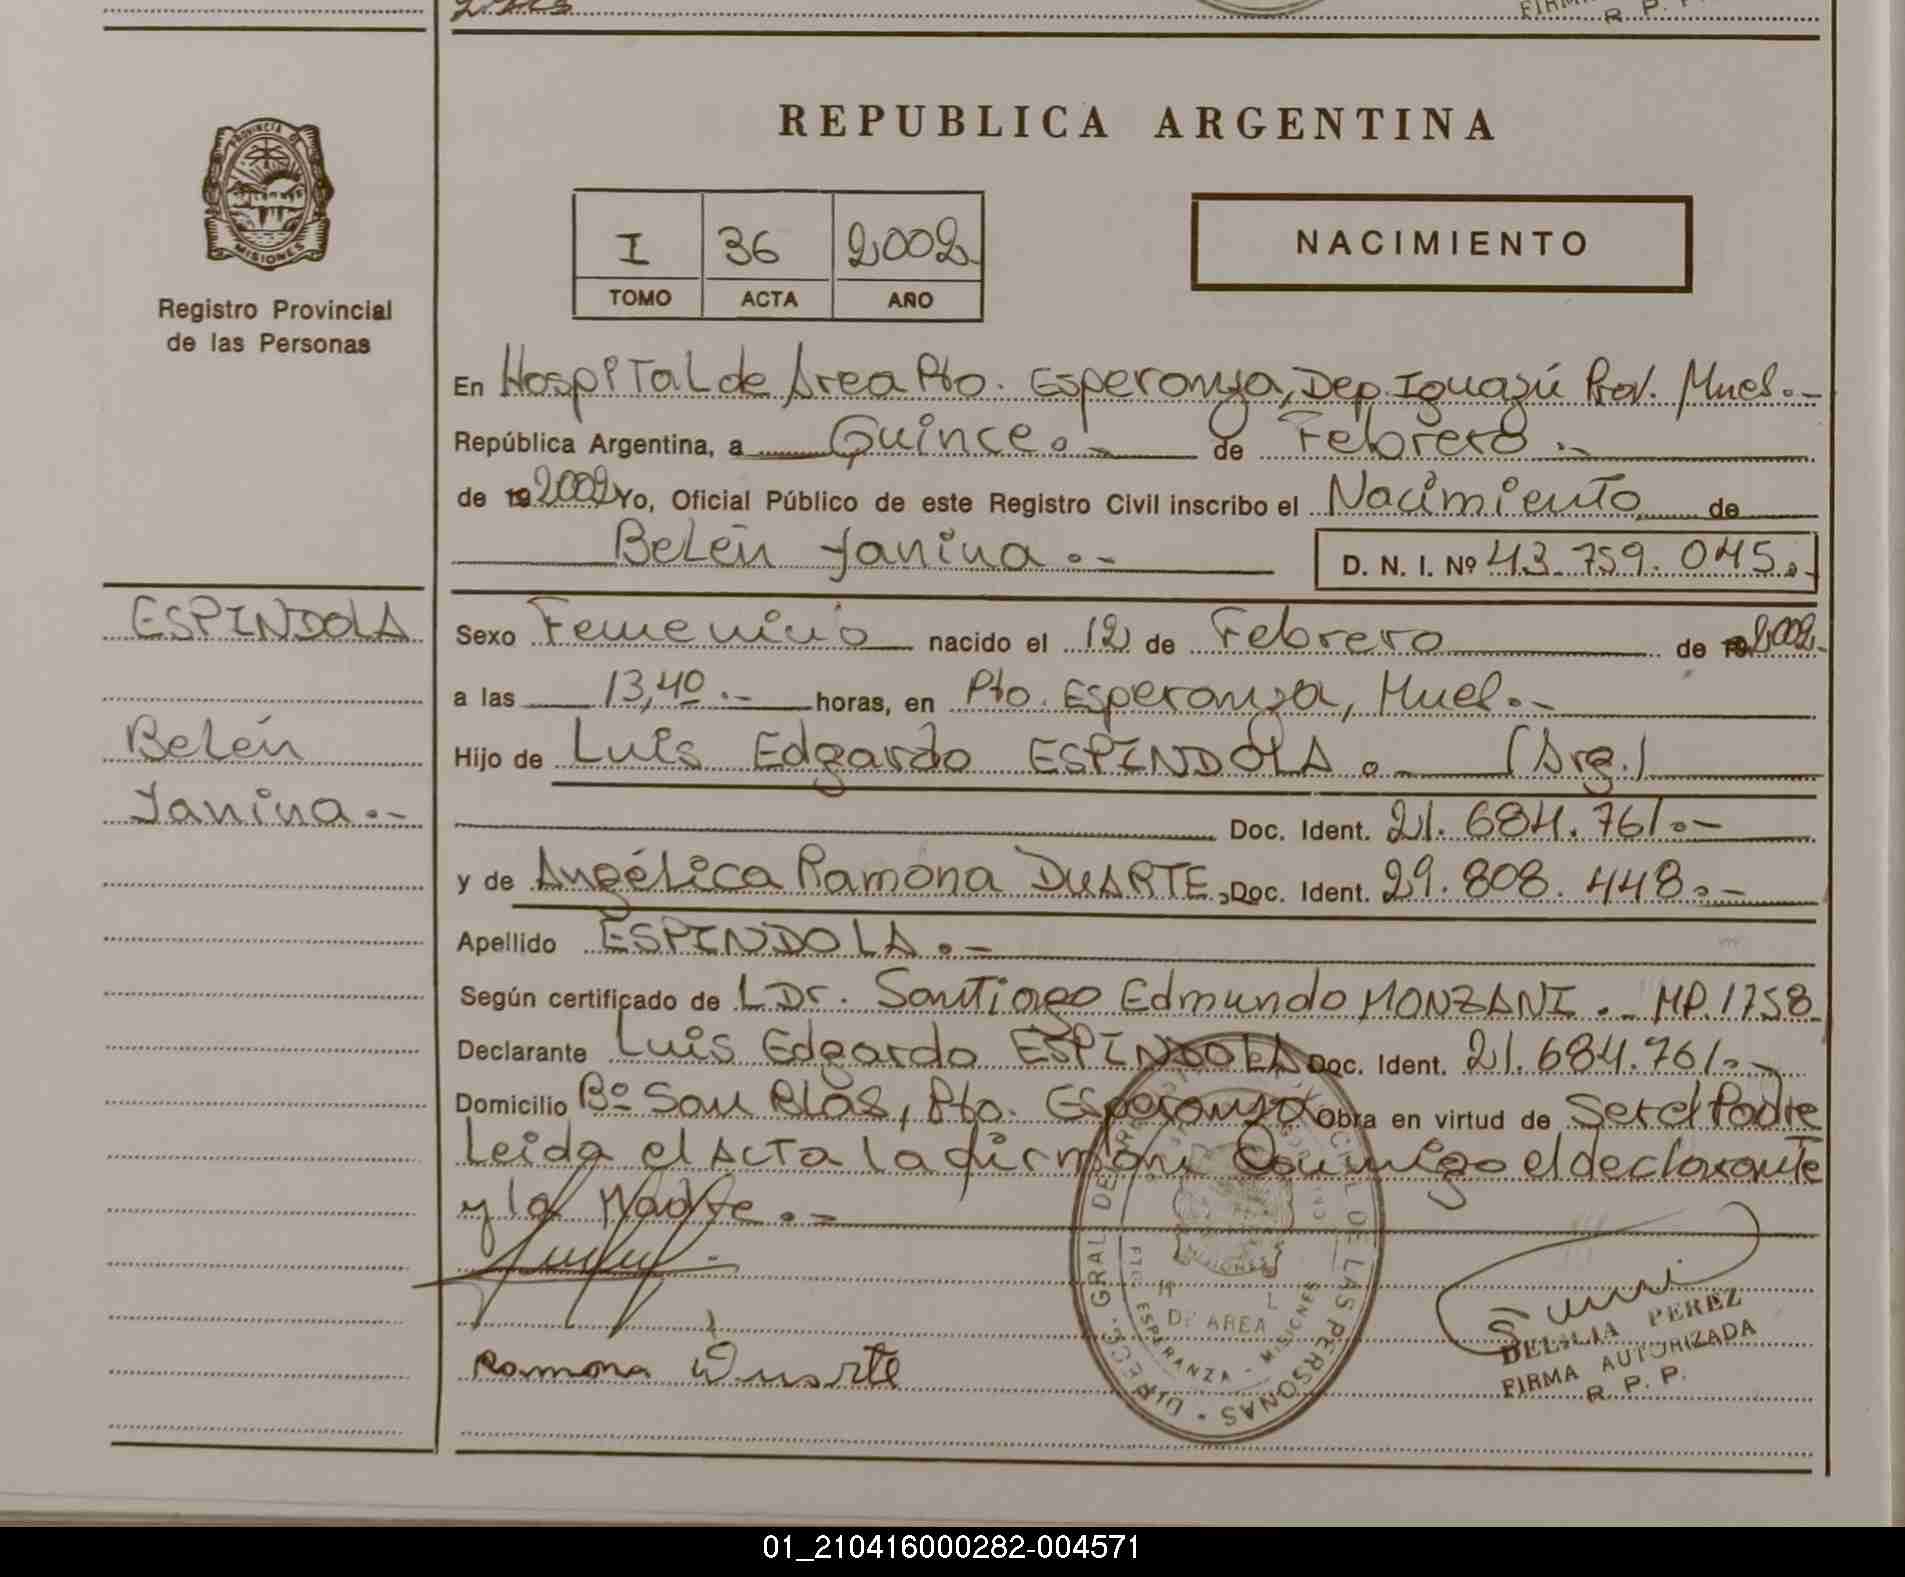 REPUBLICA ARGENTINA
PROVINCIA DE
MISIONES
Registro Provincial
de las Personas
I 36 2002
TOMO ACTA AÑO
NACIMIENTO
En Hospital de Area Pto. Esperanza, Dep. Iguazú Prov. Mnes.-
República Argentina, a Quince.- de Febrero.-
de 19 2002 Yo, Oficial Público de este Registro Civil inscribo el Nacimiento de
Belén Yanina.- D. N. I. Nº 43.759.045.-
ESPINDOLA
Belén
Yanina.-
Sexo Femenino nacido el 12 de Febrero de 19 2002.
a las 13,40.- horas, en Pto. Esperanza, Mnes.-
Hijo de Luis Edgardo ESPINDOLA.- (Arg.)
Doc. Ident. 21.684.761.-
y de Angélica Ramona DUARTE, Doc. Ident. 29.808.448.-
Apellido ESPINDOLA.-
Según certificado de L Dr. Santiago Edmundo MONZANI.- MP.1758
Declarante Luis Edgardo ESPINDOLA Doc. Ident. 21.684.761.-
Domicilio Bº San Blas, Pto. Esperanza Obra en virtud de Ser el Padre
Leida el ACTA la firman Conmigo el declarante
y la Madre.-
Ramona Duarte
DIRECC. GRAL. DE LAS PERSONAS
DE AREA
ESPERANZA - MISIONES
DELILIA PEREZ
FIRMA AUTORIZADA
R. P. P.
01_210416000282-004571